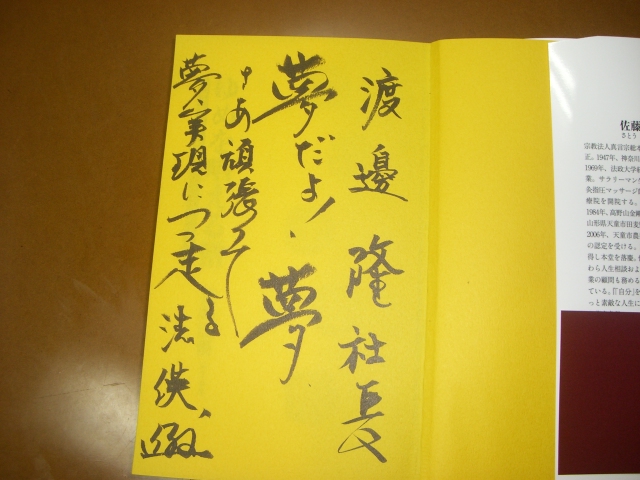 渡邊隆社長
夢だよ!、夢
さあ頑張って
夢実現につっ走る
佐藤
さとう
宗教法人真言宗総本
正。1947年、神奈川
1969年、法政大学経
業。サラリーマン
灸指圧マッサージ
療院を開院する。
1984年、高野山金剛
山形県天童市田麦
2006年、天童市農
の認定を受ける。
得し本堂を落慶。
わら人生相談およ
業の顧問も務める
ている。『「自分」を
っと素敵な人生に